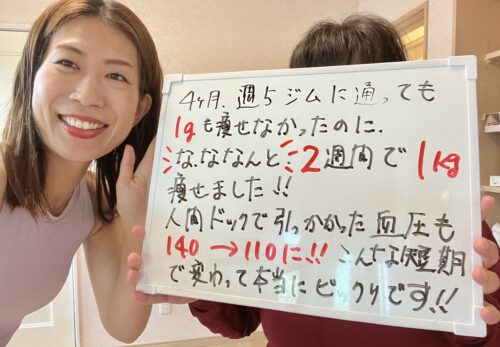 4ヶ月、週5ジムに通っても
1gも痩せなかったのに、
な、ななんと 2週間で 1kg
痩せました!!
人間ドックで引っかかった血圧も
140→110に!! こんな短期
で変わって本当にビックリです!!